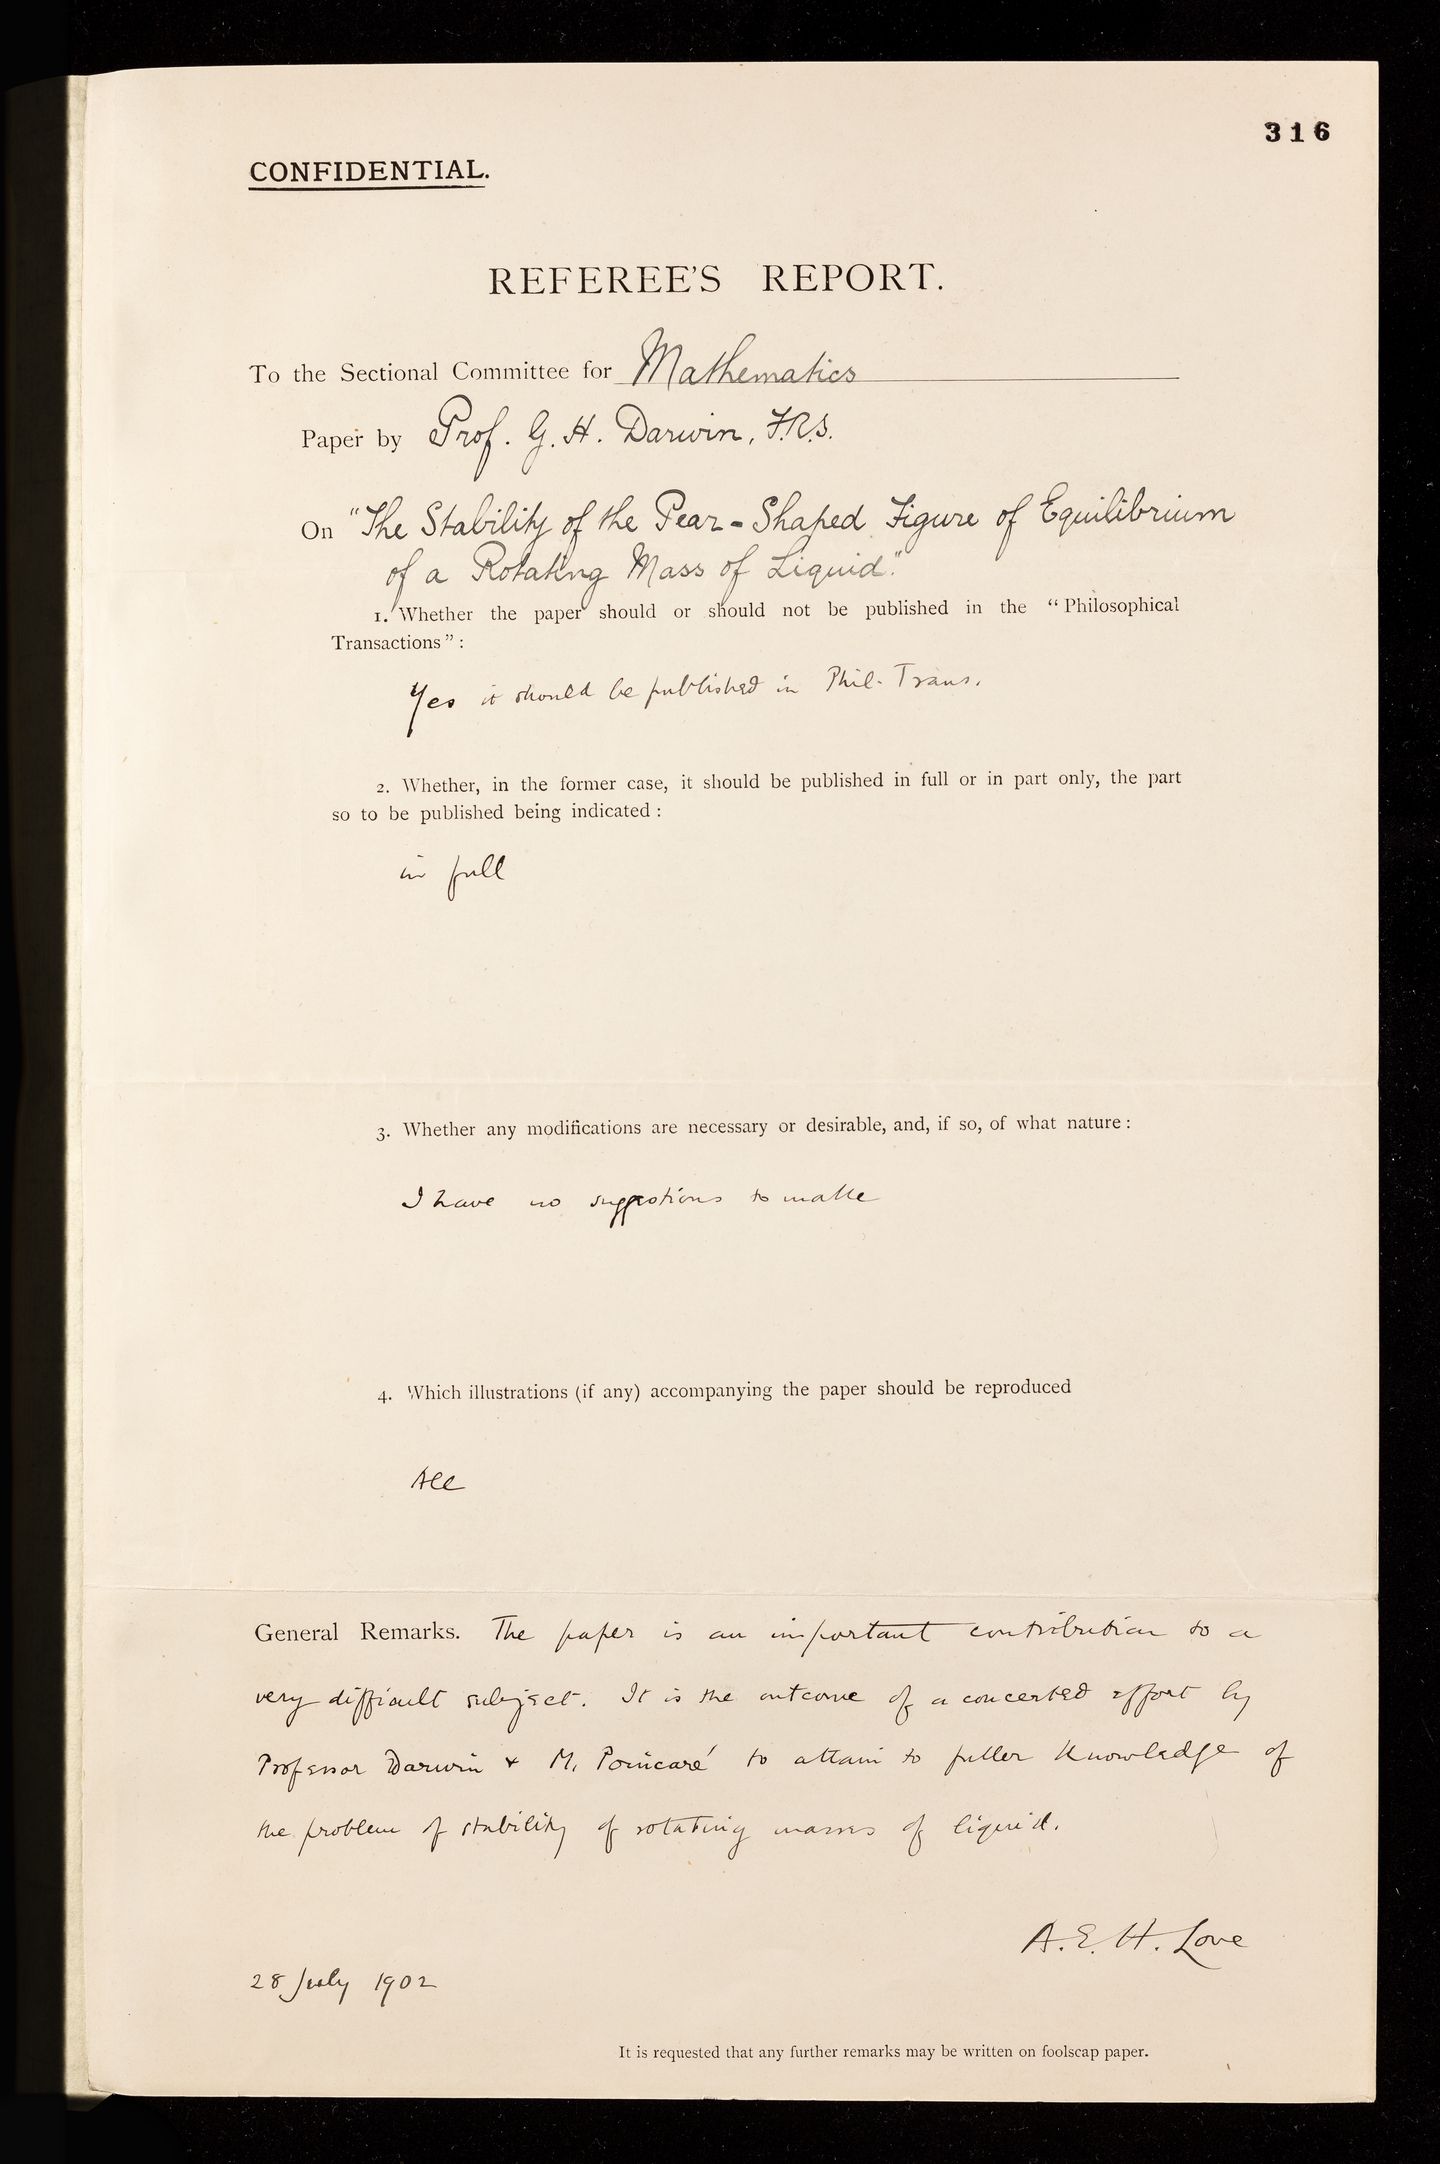 316
CONFIDENTIAL.
REFEREE'S REPORT.
To the Sectional Committee for Mathematics
Paper by Prof. G. H. Darwin, F.R.S.
On "The Stability of the Pear-Shaped Figure of Equilibrium
of a Rotating Mass of Liquid."
1. Whether the paper should or should not be published in the "Philosophical
Transactions":
Yes it should be published in Phil. Trans.
2. Whether, in the former case, it should be published in full or in part only, the part
so to be published being indicated:
in full
3. Whether any modifications are necessary or desirable, and, if so, of what nature:
I have no suggestions to make
4. Which illustrations (if any) accompanying the paper should be reproduced
All
General Remarks. The paper is an important contribution to a
very difficult subject. It is the outcome of a concerted effort by
Professor Darwin & M. Poincaré to attain to fuller knowledge of
the problem of stability of rotating masses of liquid.
A. E. H. Love
28 July 1902
It is requested that any further remarks may be written on foolscap paper.